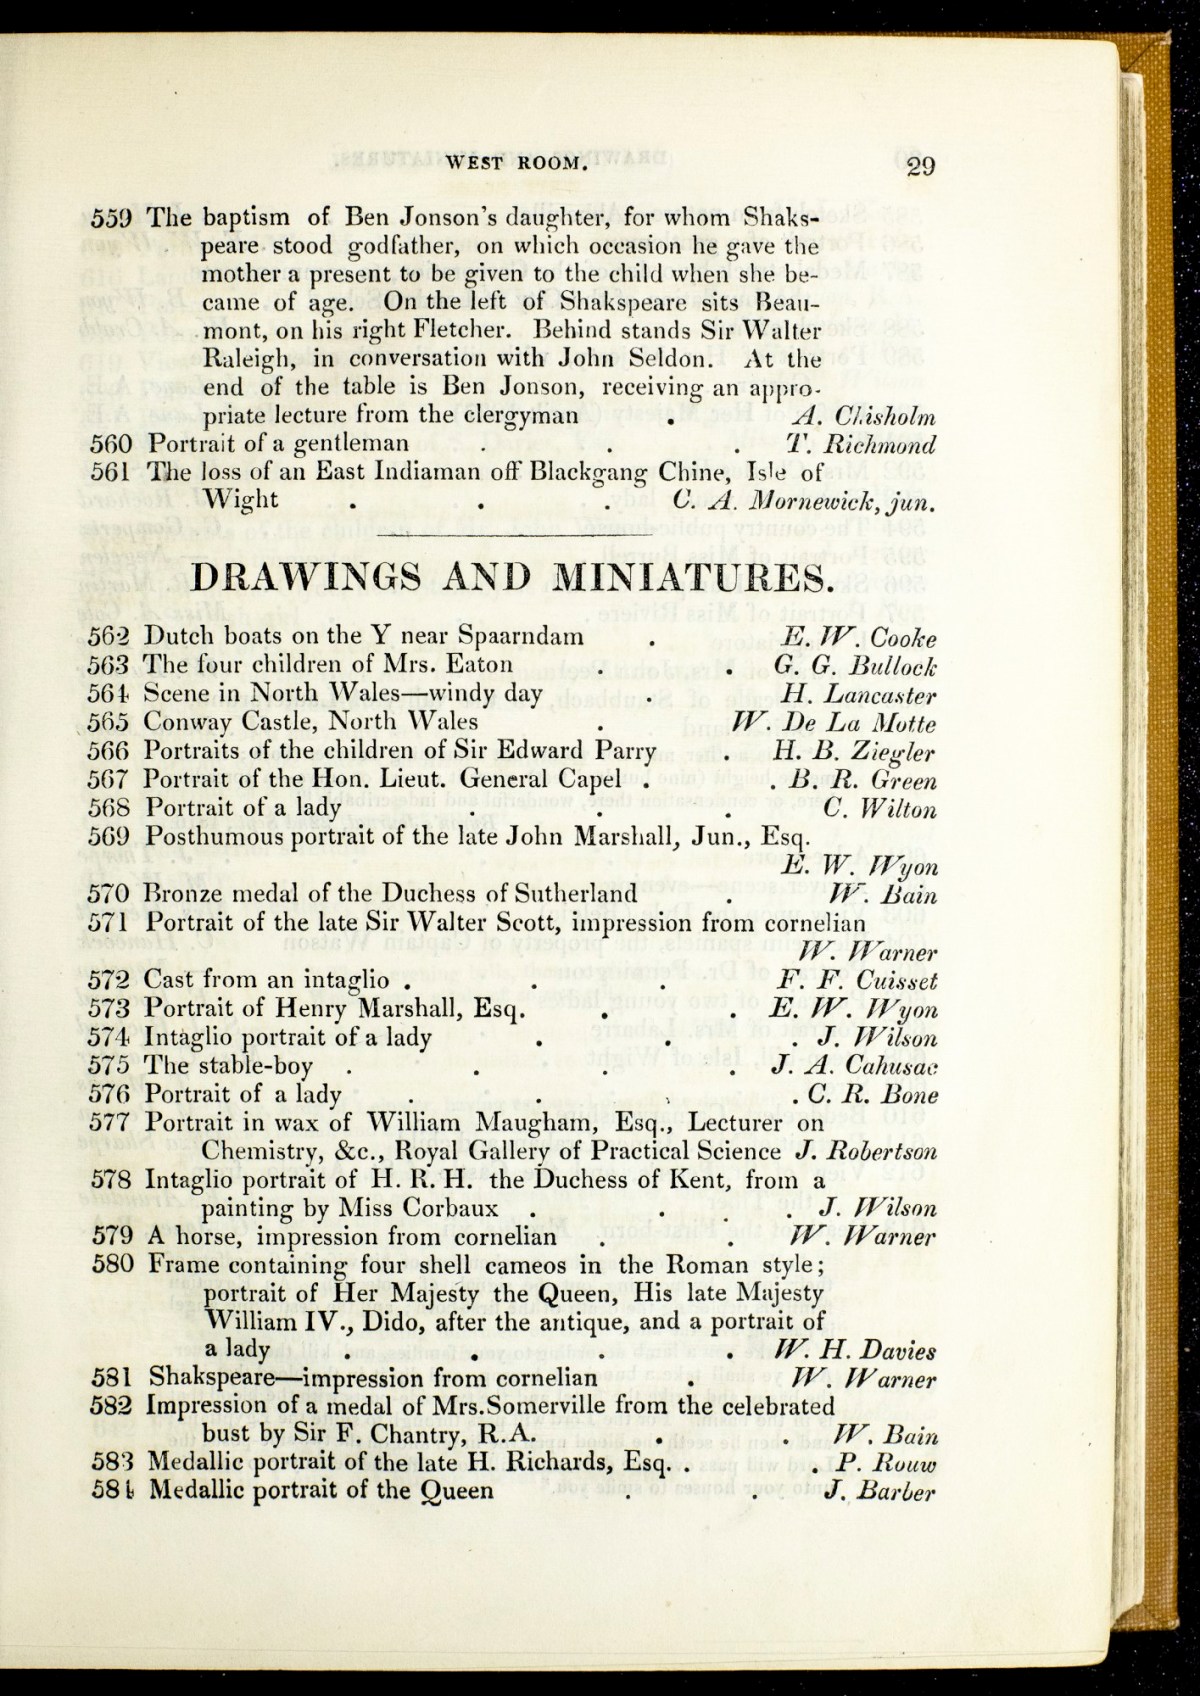 WEST ROOM. 29
559 The baptism of Ben Jonson's daughter, for whom Shaks-
peare stood godfather, on which occasion he gave the
mother a present to be given to the child when she be-
came of age. On the left of Shakspeare sits Beau-
mont, on his right Fletcher. Behind stands Sir Walter
Raleigh, in conversation with John Seldon. At the
end of the table is Ben Jonson, receiving an appro-
priate lecture from the clergyman . A. Chisholm
560 Portrait of a gentleman . . . T. Richmond
561 The loss of an East Indiaman off Blackgang Chine, Isle of
Wight . . . C. A. Mornewick, jun.
DRAWINGS AND MINIATURES.
562 Dutch boats on the Y near Spaarndam . E. W. Cooke
563 The four children of Mrs. Eaton . . G. G. Bullock
564 Scene in North Wales—windy day . H. Lancaster
565 Conway Castle, North Wales . W. De La Motte
566 Portraits of the children of Sir Edward Parry . H. B. Ziegler
567 Portrait of the Hon. Lieut. General Capel . . B. R. Green
568 Portrait of a lady . . . C. Wilton
569 Posthumous portrait of the late John Marshall, Jun., Esq.
E. W. Wyon
570 Bronze medal of the Duchess of Sutherland . W. Bain
571 Portrait of the late Sir Walter Scott, impression from cornelian
W. Warner
572 Cast from an intaglio . . . F. F. Cuisset
573 Portrait of Henry Marshall, Esq. . . E. W. Wyon
574 Intaglio portrait of a lady . . . J. Wilson
575 The stable-boy . . . . J. A. Cahusac
576 Portrait of a lady . . . . C. R. Bone
577 Portrait in wax of William Maugham, Esq., Lecturer on
Chemistry, &c., Royal Gallery of Practical Science J. Robertson
578 Intaglio portrait of H. R. H. the Duchess of Kent, from a
painting by Miss Corbaux . . . . J. Wilson
579 A horse, impression from cornelian . . W. Warner
580 Frame containing four shell cameos in the Roman style;
portrait of Her Majesty the Queen, His late Majesty
William IV., Dido, after the antique, and a portrait of
a lady . . . . W. H. Davies
581 Shakspeare—impression from cornelian . W. Warner
582 Impression of a medal of Mrs. Somerville from the celebrated
bust by Sir F. Chantry, R.A. . . W. Bain
583 Medallic portrait of the late H. Richards, Esq. . . P. Rouw
584 Medallic portrait of the Queen . . J. Barber